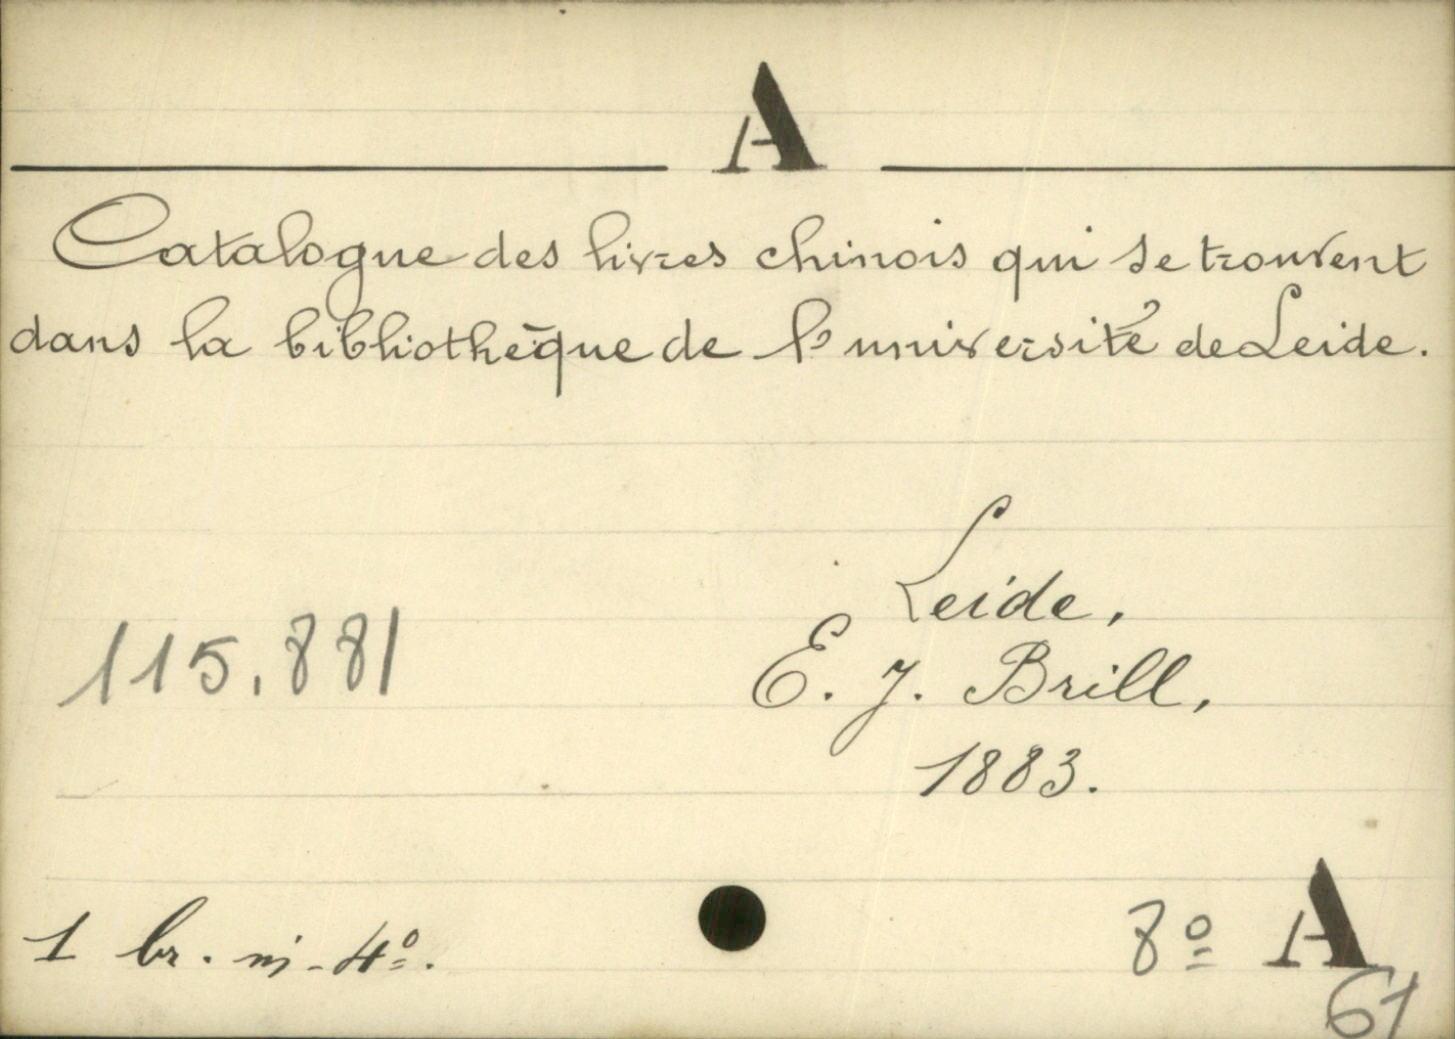 A
Catalogue des livres chinois qui se trouvent
dans la bibliothèque de l'université de Leide.
Leide,
115.881
E. J. Brill,
1883.
1 br. in-4º.
8º A
61